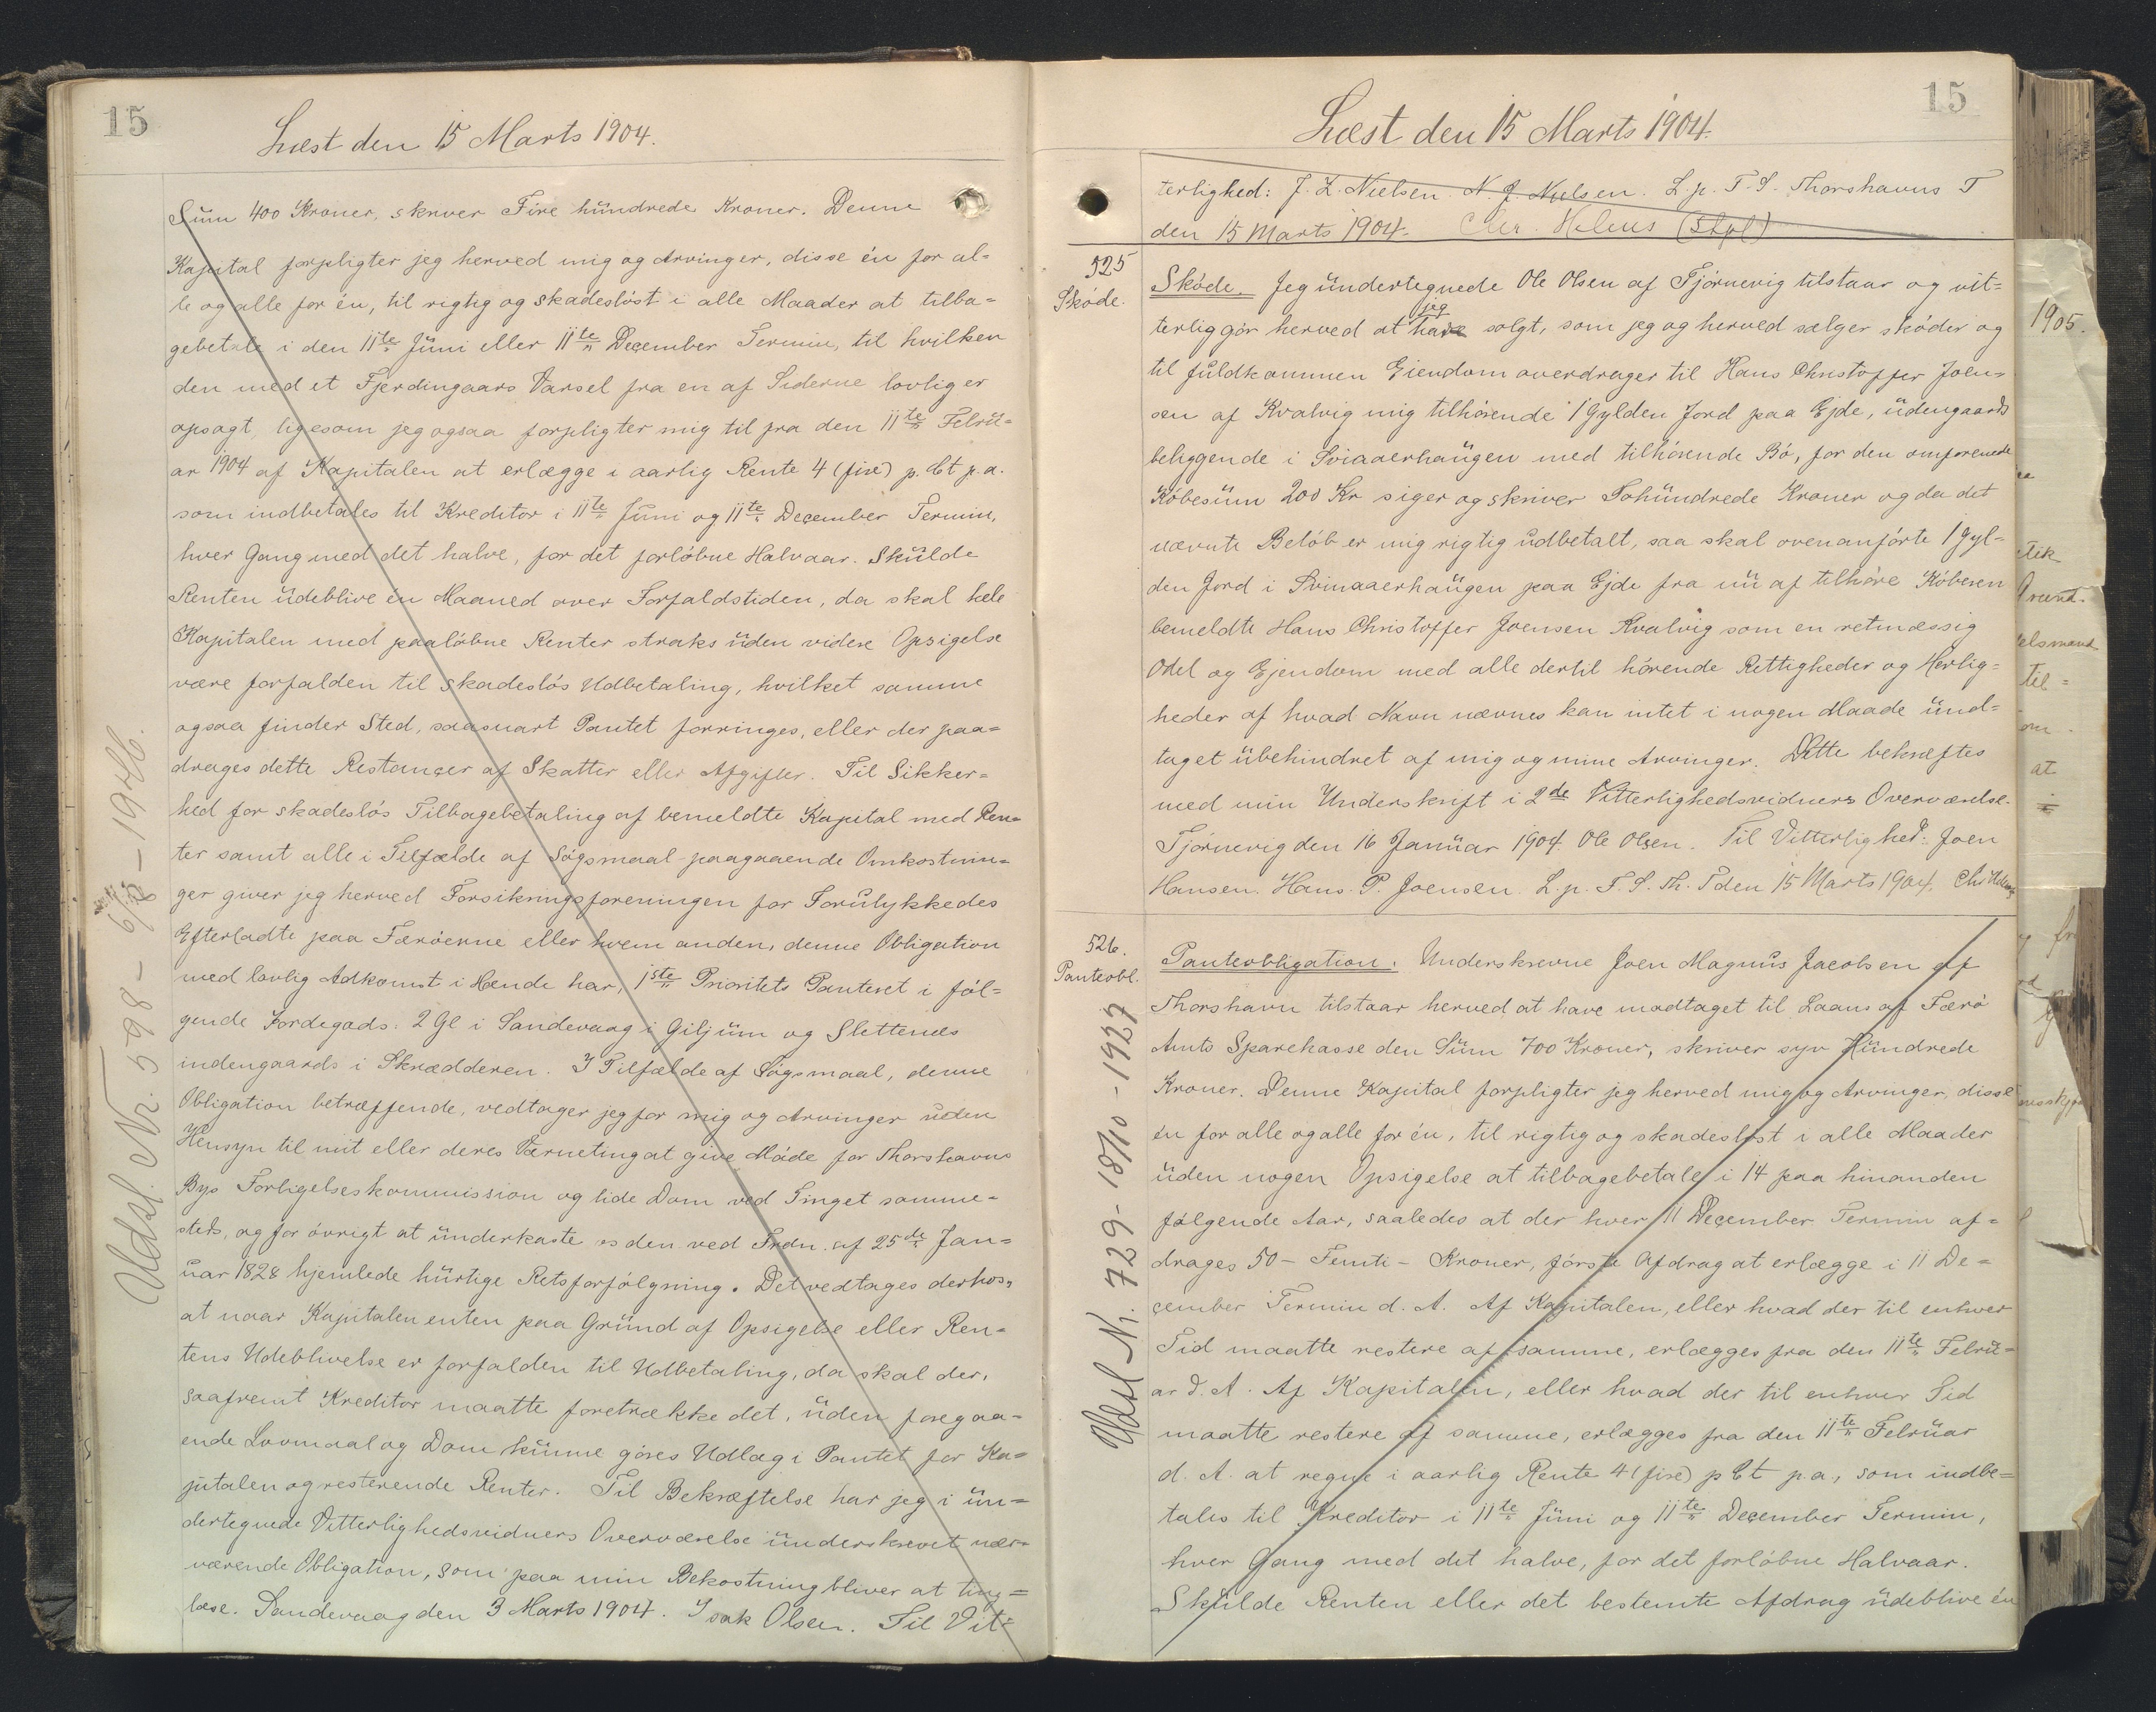 15
Læst den 15 Marts 1904.
Sum 400 Kroner, skriver Fire hundrede Kroner. Denne
Kapital forpligter jeg herved mig og Arvinger, disse én for al=
le og alle for én, til rigtig og skadesløst i alle Maader at tilba=
gebetale i den 11te Juni eller 11te December Termin, til hvilken
den med et Fjerdingaars Varsel fra en af Siderne lovlig er
opsagt, ligesom jeg ogsaa forpligter mig til fra den 11te Febru=
ar 1904 af Kapitalen at erlægge i aarlig Rente 4 (fire) p. Ct p. a.
som indbetales til Kreditor i 11te Juni og 11te December Termin,
hver Gang med det halve, for det forløbne Halvaar. Skulde
Renten udeblive én Maaned over Forfaldstiden, da skal hele
Kapitalen med paaløbne Renter straks uden videre Opsigelse
være forfalden til skadesløs Udbetaling, hvilket samme
ogsaa finder Sted, saasnart Pantet forringes, eller der paa=
drages dette Restancer af Skatter eller Afgifter. Til Sikker=
hed for skadesløs Tilbagebetaling af bemeldte Kapital med Ren=
ter samt alle i Tilfælde af Søgsmaal paagaaende Omkostnin=
ger giver jeg herved Forsikringsforeningen for Forulykkedes
Efterladte paa Færøerne eller hvem anden, denne Obligation
med lovlig Adkomst i Hænde har, 1ste Prioritets Panteret i føl=
gende Jordegods: 2 Gl i Sandevaag i Giljum og Slettenes
indengaards i Skrædderen. I Tilfælde af Søgsmaal, denne
Obligation betræffende, vedtager jeg for mig og Arvinger uden
Hensyn til mit eller deres Værneting at give Møde for Thorshavns
Bys Forligelseskommission og lide Dom ved Tinget samme=
steds, og for øvrigt at underkaste os den ved Frdn. af 25de Jan=
uar 1828 hjemlede hurtige Retsforfølgning. Det vedtages derhos,
at naar Kapitalen enten paa Grund af Opsigelse eller Ren=
tens Udeblivelse er forfalden til Udbetaling, da skal der,
saafremt Kreditor maatte foretrække det, uden foregaa=
ende Lovmaal og Dom kunne gøres Udlæg i Pantet for Ka=
pitalen og resterende Renter. Til Bekræftelse har jeg i un=
dertegnede Vitterlighedsvidners Overværelse underskrevet nær=
værende Obligation, som paa min Bekostning bliver at ting=
læse. Sandevaag den 3 Marts 1904. Isak Olsen. Til Vit=
Udsl. Nr. 598 - 6/8 - 1916.
15
Læst den 15 Marts 1904.
terlighed: J. Z. Nielsen. N. J. Nielsen. L. p. T. S. Thorshavns T
den 15 Marts 1904. Chr. (Stpl)
525
Skøde.
Skøde. Jeg undertegnede Ole Olsen af Tjørnevig tilstaar og vit=
terliggør herved at jeg har solgt, som jeg og herved sælger skøder og
til fuldkommen Eiendom overdrager til Hans Christoffer Joen=
sen af Kvalvig mig tilhørende 1 Gylden Jord paa Ejde, udengaards
beliggende i Sviaaerhaugen med tilhørende Bø, for den omforenede
Købesum 200 Kr siger og skriver Tohundrede Kroner og da det
nævnte Beløb er mig rigtig udbetalt, saa skal ovenanførte 1 Gyl=
den Jord i Svinaaerhaugen paa Ejde fra nu af tilhøre Køberen
bemeldte Hans Christoffer Joensen Kvalvig som en retmæssig
Odel og Ejendom med alle dertil hørende Rettigheder og Herlig=
heder af hvad Navn nævnes kan intet i nogen Maade und=
taget ubehindret af mig og mine Arvinger. Dette bekræftes
med min Underskrift i 2de Vitterlighedsvidners Overværelse.
Tjørnevig den 16 Januar 1904. Ole Olsen. Til Vitterlighed: Joen
Hansen. Hans P. Joensen. L. p. T. S. Th. T den 15 Marts 1904.
526.
Panteobl.
Panteobligation. Underskrevne Joen Magnus Jacobsen af
Thorshavn tilstaar herved at have modtaget til Laans af Færø
Amts Sparekasse den Sum 700 Kroner, skriver syv Hundrede
Kroner. Denne Kapital forpligter jeg herved mig og Arvinger, disse
én for alle og alle for én, til rigtig og skadesløst i alle Maader
uden nogen Opsigelse at tilbagebetale i 14 paa hinanden
følgende Aar, saaledes at der hver 11 December Termin af=
drages 50 - Femti - Kroner, første Afdrag at erlægge i 11 De=
cember Termin d. A. Af Kapitalen, eller hvad der til enhver
Tid maatte restere af samme, erlægges fra den 11te Febru=
ar d. A. Af Kapitalen, eller hvad der til enhver Tid
maatte restere af samme, erlægges fra den 11te Februar
d. A. at regne i aarlig Rente 4 (fire) p Ct p a., som indbe=
tales til Kreditor i 11te Juni og 11te December Termin,
hver Gang med det halve, for det forløbne Halvaar.
Skulde Renten eller det bestemte Afdrag udeblive én
Udsl Nr. 729 - 18/10 - 1927
1905.
elsmand
til=
om
at